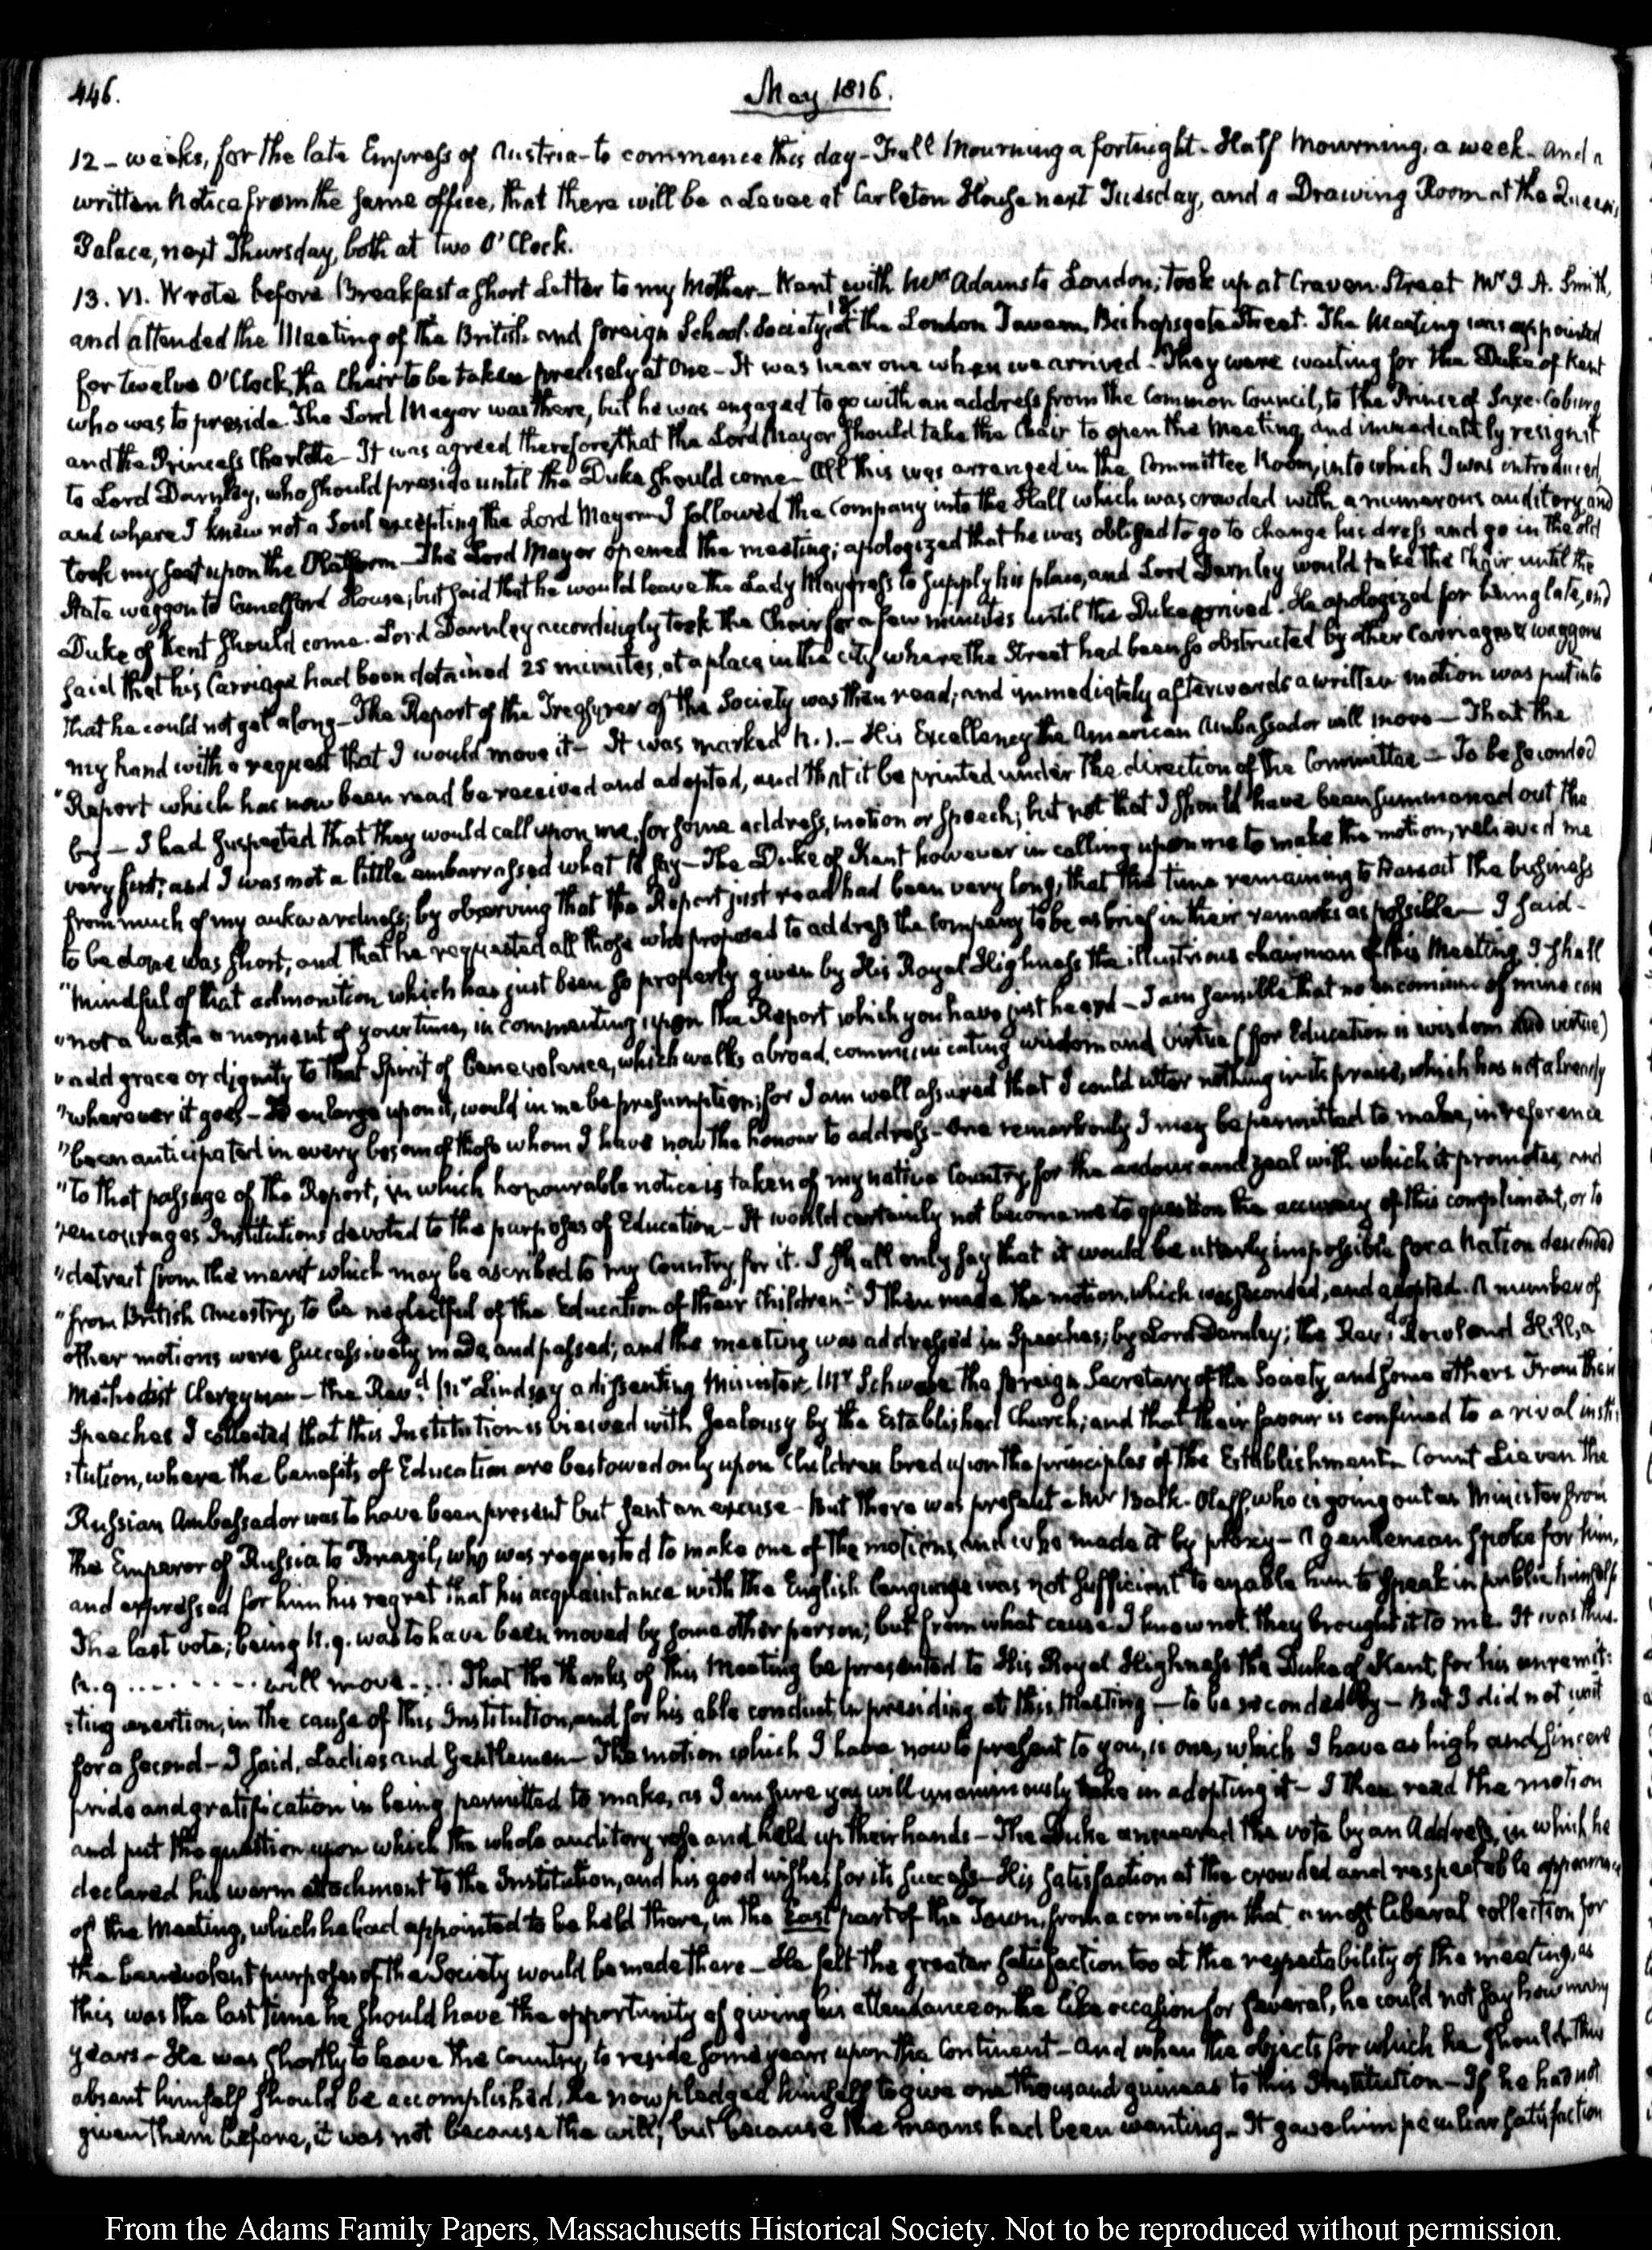 446.
May 1816.
12 - weeks, for the late Empress of Austria - to commence this day - Full Mourning a fortnight - Half Mourning, a week - and a
written Notice from the same office, that there will be a Levee at Carleton House next Tuesday, and a Drawing Room at the Queen's
Palace, next Thursday, both at two O'Clock.
13. VI. Wrote before Breakfast a short Letter to my Mother - Went with Mrs Adams to London; took up at Craven Street Mr J. A. Smith,
and attended the Meeting of the British and foreign School Society, at the London Tavern, Bishopsgate Street. The Meeting was appointed
for twelve O'Clock, the Chair to be taken precisely at One - It was near one when we arrived - They were waiting for the Duke of Kent
who was to preside. The Lord Mayor was there, but he was engaged to go with an address from the Common Council, to the Prince of Saxe-Coburg
and the Princess Charlotte - It was agreed therefore that the Lord Mayor should take the Chair to open the Meeting, and immediately resign it
to Lord Darnley, who should preside until the Duke should come - All this was arranged in the Committee Room, into which I was introduced,
and where I knew not a Soul excepting the Lord Mayor - I followed the Company into the Hall which was crowded with a numerous auditory, and
took my seat upon the Platform - The Lord Mayor opened the meeting; apologized that he was obliged to go to change his dress and go in the old
State waggon to Camelford House; but said that he would leave the Lady Mayoress to supply his place, and Lord Darnley would take the Chair until the
Duke of Kent should come. Lord Darnley accordingly took the Chair for a few minutes until the Duke arrived. He apologized for being late, and
said that his Carriage had been detained 25 minutes, at a place in the city where the Street had been so obstructed by other Carriages & waggons
that he could not get along - The Report of the Treasurer of the Society was then read; and immediately afterwards a written motion was put into
my hand with a request that I would move it - It was marked N. 1. - His Excellency the American Ambassador will move - That the
"Report which has now been read be received and adopted, and that it be printed under the direction of the Committee - To be seconded
by - I had suspected that they would call upon me, for some address, motion or speech; but not that I should have been summoned out the
very first; and I was not a little embarrassed what to say - The Duke of Kent however in calling upon me to make the motion, relieved me
from much of my aukwardness, by observing that the Report just read had been very long, that the time remaining to transact the business
to be done was short, and that he requested all those who proposed to address the Company to be as brief in their remarks as possible - I said -
"Mindful of that admonition which has just been so properly given by His Royal Highness the illustrious chairman of this Meeting, I shall
"not a waste a moment of your time, in commenting upon the Report which you have just heard - I am sensible that no encomium of mine can
"add grace or dignity to that Spirit of Benevolence, which walks abroad, communicating wisdom and virtue (for Education is wisdom and virtue)
"wherever it goes - To enlarge upon it, would in me be presumption; for I am well assured that I could utter nothing in its praise, which has not already
"been anticipated in every bosom of those whom I have now the honour to address - One remark only I may be permitted to make, in reference
"to that passage of the Report, in which honourable notice is taken of my native Country, for the ardour and zeal with which it promotes, and
"encourages Institutions devoted to the purposes of Education - It would certainly not become me to question the accuracy of this compliment, or to
"detract from the merit which may be ascribed to my Country for it. I shall only say that it would be utterly impossible for a Nation descended
"from British Ancestry, to be neglectful of the Education of their Children" - I then made the motion, which was seconded, and adopted. A number of
other motions were successively made, and passed; and the meeting was addressed in Speeches; by Lord Darnley; the Revd. Rowland Hill, a
Methodist Clergyman - the Revd. Mr Lindsay a dissenting Minister, Mr Schwabe the foreign Secretary of the Society and some others. From their
Speeches I collected that this Institution is viewed with Jealousy by the Established Church; and that their favour is confined to a rival insti:
:tution, where the benefits of Education are bestowed only upon Children bred upon the principles of the Establishment - Count Lieven the
Russian Ambassador was to have been present but sent an excuse - But there was present a Mr Balk-Poleff, who is going out as Minister from
the Emperor of Russia to Brazil, who was requested to make one of the motions, and who made it by proxy - A gentleman spoke for him,
and expressed for him his regret that his acquaintance with the English language was not sufficient to enable him to speak in public himself.
The last vote; being N. 9. was to have been moved by some other person; but from what cause I know not, they brought it to me. It was thus.
N. 9 ........ will move .... That the thanks of this Meeting be presented to His Royal Highness the Duke of Kent, for his unremit:
:ting exertion, in the cause of this Institution, and for his able conduct in presiding at this Meeting - to be seconded by - But I did not wait
for a second - I said, Ladies and Gentlemen - The motion which I have now to present to you, is one, which I have as high and sincere
pride and gratification in being permitted to make, as I am sure you will unanimously take in adopting it - I then read the motion
and put the question upon which the whole auditory rose and held up their hands - The Duke answered the vote by an Address, in which he
declared his warm attachment to the Institution, and his good wishes for its success - His satisfaction at the crowded and respectable appearance
of the Meeting, which he had appointed to be held there, in the East part of the Town, from a conviction that a most liberal collection for
the benevolent purposes of the Society would be made there - He felt the greater satisfaction too at the respectability of the meeting, as
this was the last time he should have the opportunity of giving his attendance on the like occasion for several, he could not say how many
years - He was shortly to leave the Country, to reside some years upon the Continent - and when the objects for which he should thus
absent himself should be accomplished, he now pledged himself to give one thousand guineas to this Institution - If he had not
given them before, it was not because the will, but because the means had been wanting - It gave him peculiar satisfaction
From the Adams Family Papers, Massachusetts Historical Society. Not to be reproduced without permission.